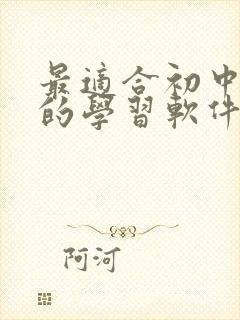 最適合初中
的學習軟件
阿河